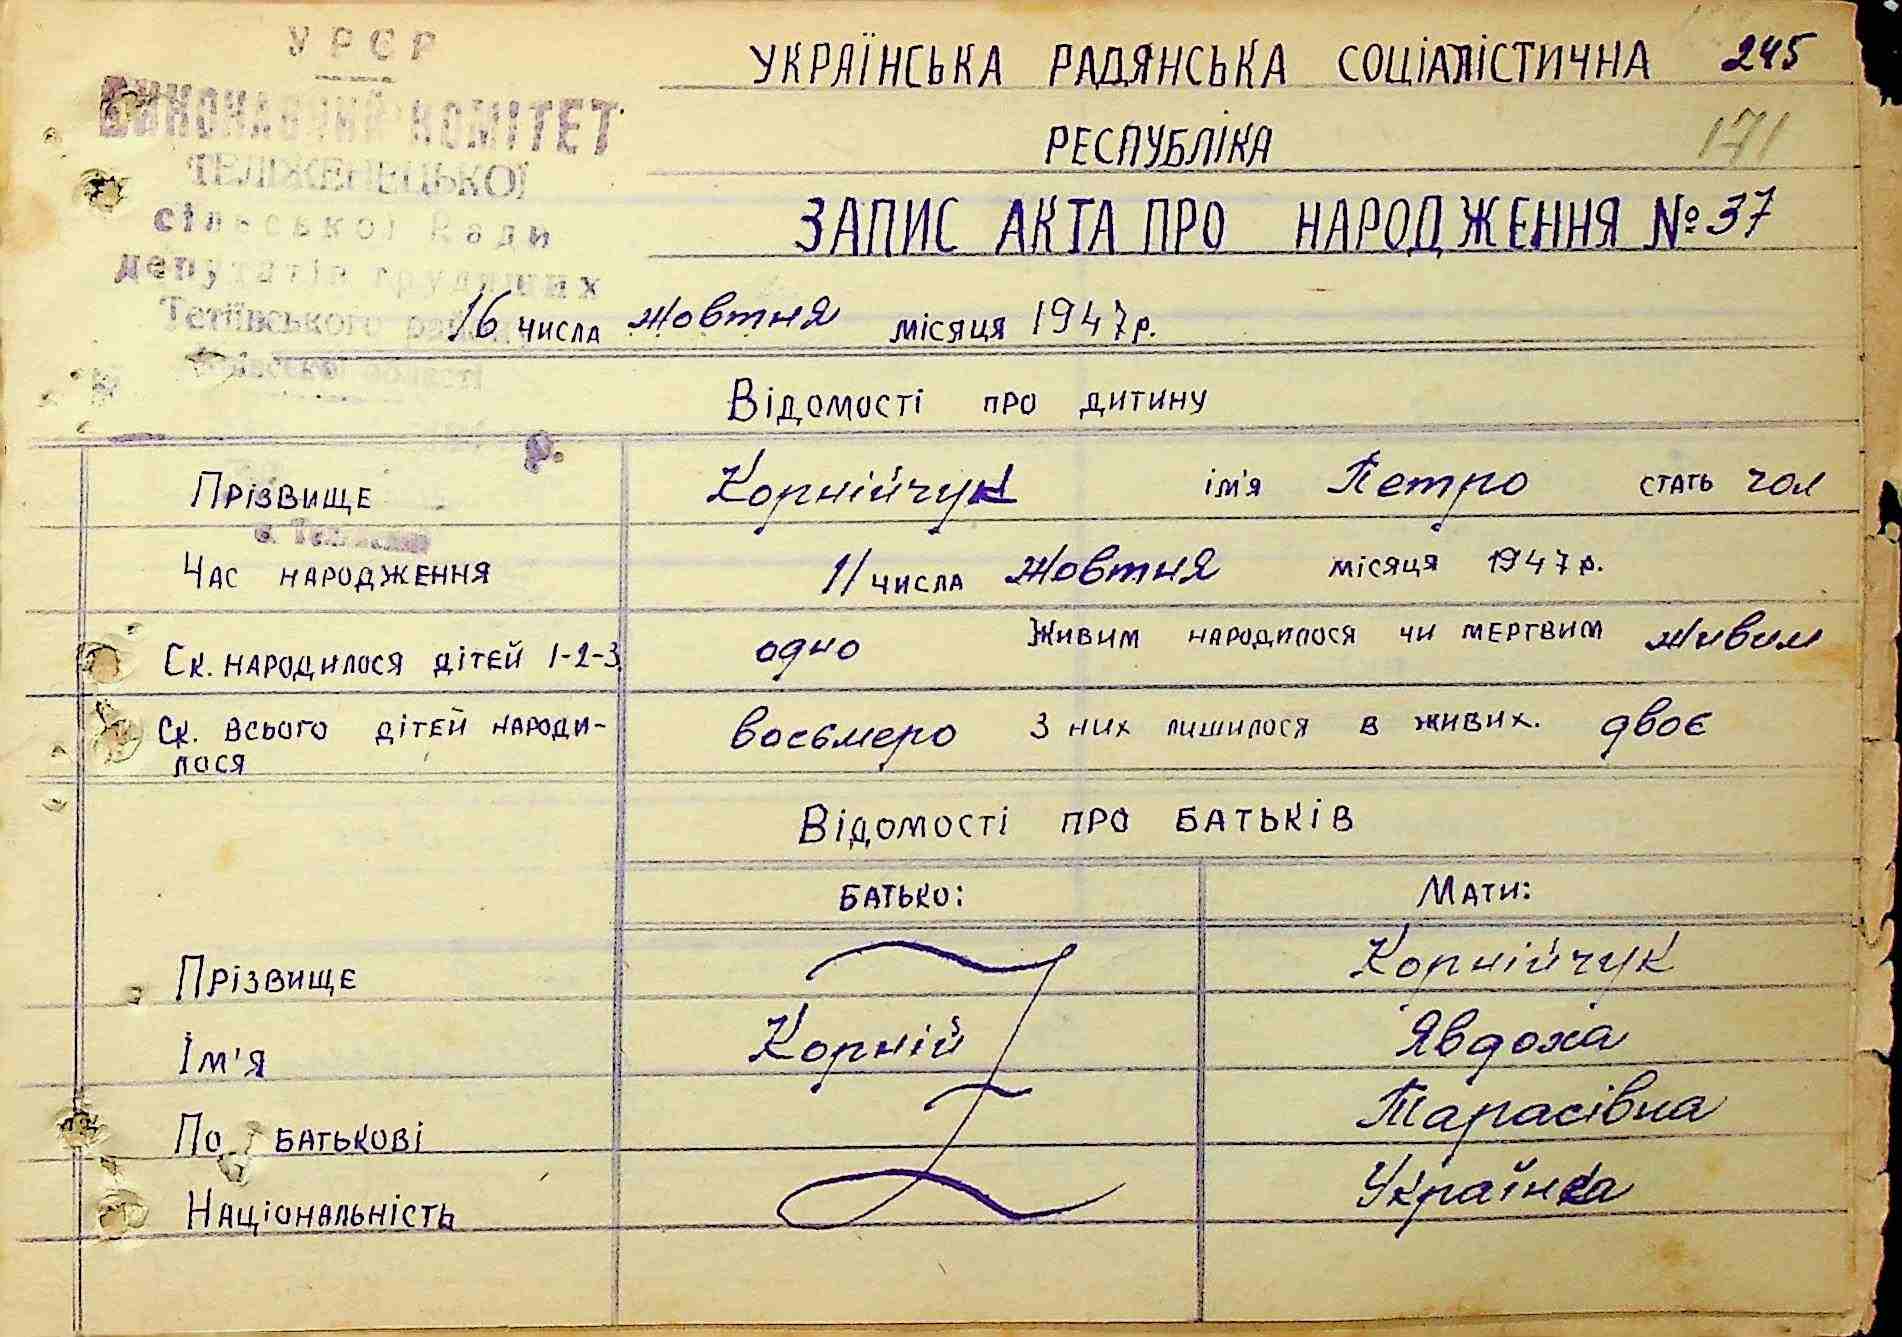 УРСР
ВИКОНАВЧИЙ КОМІТЕТ
ТЕЛІЖЕНЕЦЬКОЇ
сільської Ради
депутатів трудящих
Тетіївського району
Київської області
УКРАЇНСЬКА РАДЯНСЬКА СОЦІАЛІСТИЧНА 245
РЕСПУБЛІКА 171
ЗАПИС АКТА ПРО НАРОДЖЕННЯ № 37
16 числа жовтня місяця 1947 р.
Відомості про дитину
Прізвище Корнійчук ім'я Петро стать чол
Час народження 11 числа жовтня місяця 1947 р.
Ск. народилося дітей 1-2-3 одно Живим народилося чи мертвим живим
Ск. всього дітей народи- восьмеро З них лишилося в живих. двоє
лося
Відомості про батьків
Батько: Мати:
Прізвище Корнійчук
Ім'я Корній Явдоха
По батькові Тарасівна
Національність Українка